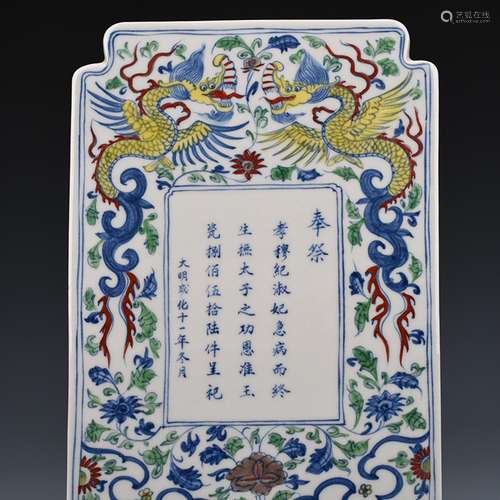 奉祭
孝穆紀淑妃急病而終
生撫太子之功恩准玉
瓷捌佰伍拾陆件呈祀
大明成化十一年冬月
艺狐在线